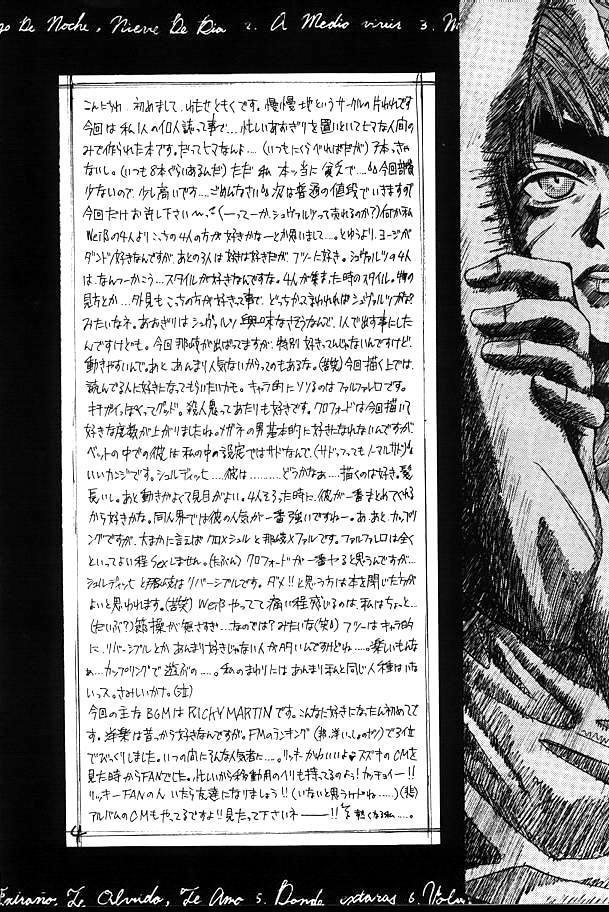 go De Noche, Nieve De Dia 2. A Medio vivir 3. M
こんにちわ、初めまして、
今回は私1人の個人誌って事で…忙しいあおぎりを置いといてヒマな人間の
みで作られた本です。だってヒマなんよ…(いつもにくらべればだが)
ないし。(いつも8本ぐらいあるんだ) ただ 私 本ッ当に貧乏で…
少ないので、少し高いです…ごめんなさい 次は普通の値段でいきますので
今回だけお許し下さい〜 (ーってーか、シュヴァルツって売れるのか?) 何か私
Weißの4人よりこっちの4人の方が好きかなーとか思いまして…とゆうより、ヨージが
ダントツ好きなんですが、あとの3人は
は、なんつーかこう…スタイルが好きなんですな。4人が集まった時のスタイル。物の
見方とか…外見もこっちの方が好きって事で、どっちかってまわれればシュヴァルツかな
みたいなネ。あおぎりはシュヴァルツ興味なさそうなんで、1人で出す事にした
んですけども。今回那岐が出ばってますが、特別好きってんじゃないんですけど、
動きやすいんで。あと、あんまり人気ないからってのもあるな。(苦笑) 今回描く上では、
読んでる人に好きになってもらいたいかも。キャラ的にソソるのはファルファレロです。
キチガイっぽくってグッド。殺人鬼ってあたりも好きです。クロフォードは今回描いて
好きな度数が上がりましたね。メガネの男基本的に好きになれないんですが
ベットの中での彼は私の中の設定ではサドなんで、
いいカンジです。シュルディッヒ…彼は………どうかなぁ…描くのは好き。髪
長いし。あと動きがよくて見目がよい。4人そろった時に、彼が一番まとめてくれる
から好きかな。同人界では彼の人気が一番強いですねー。あ、あと、カップリ
ングですが、大まかに言えばクロ×シュルと那岐×ファルです。ファルファレロは全く
といってよい程Sexしません。(たぶん) クロフォードが一番ヤると思うんですが…
シュルディッヒと那岐はリバーシブルです。ダメ!!と思う方は本を閉じた方が
よいと思われます。(苦笑) Weißやってて痛い程感じるのは、私はちょっと…
(だいぶ?) 節操が無さすぎ…なのでは?みたいな(笑) フツーはキャラ的
に、リバーシブルとか、あんまり好きじゃない人が多いんですけどね…。楽しいもんな
ぁ…カップリングで遊ぶの…。私のまわりにはあんまり私と同じ人種はいな
いっス。さみしいかナ。(泣)
今回の主なBGMはRICKY MARTINです。こんなに好きになったん初めてで
す。洋楽は昔っから好きなんですが。FMのランキングで3位
でびっくりしました。いつの間にそんな人気者に…。リッキーかわいいよ♥ スズキのCMを
見た時からFANでした。忙しいから
リッキーFANの人いたら友達になりましょう!! (いないと思うケドね……) (悲)
アルバムのCMもやってるですよ!! 見たって下さいネ——!!
4
Extraño. Te Olvido, Te Amo 5. Donde estaras 6. Volve